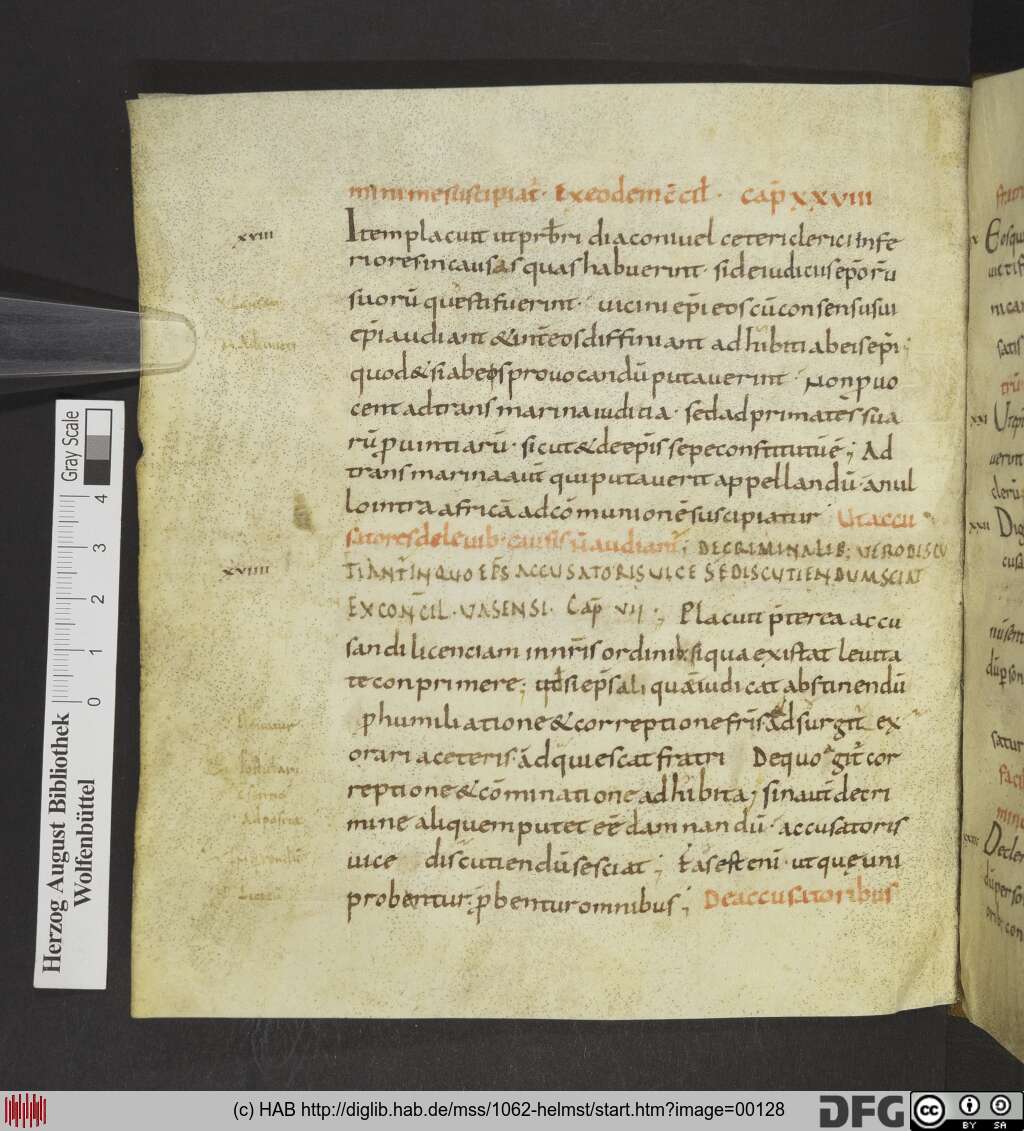 minimesuscipiat· Exeodemc̄cil̄· cap̄ xxviii
xviii
Item placuit ut prb̄ri diaconi uel ceteri clerici infe
riores in causas quas habuerint· si de iudicus ep̄orū
suorū questi fuerint· uicini ep̄i eos cū consensu sui
ep̄i audiant & int̄ eos diffiniant adhibiti ab eis ep̄i·
quod & si ab eos prouocandū putauerint· Non p̄uo
cent ad transmarina iuditia· sed ad primates sua
rū p̄uintiarū· sicut & de ep̄is sepe constitutū ē; Ad
transmarina aut̄ qui putauerit appellandū· a nul
lo intra africā ad cōmunionē suscipiatur; Ut accu
satores de leuib· causis n̄ audiant̄; DECRIMINALIB; UERO DISCU
xviiii
TIANT IN QUO EPS̄ ACCUSATORIS UICE SE DISCUTIENDUM SCIAT
EX CON̄CIL· UASENSI· Cap̄ VII·; Placuit p̄terea accu
sandi licenciam in nr̄is ordinib si qua existat leuita
te conprimere; ut si ep̄s ali quā iudicat abstinendū
p humiliatione & correptione fr̄is adsurgit ex
orari a ceteris· adquiescat fratri De quo agit̄ cor
reptione & cōminatione adhibita; sin aut̄ de cri
mine aliquem putet eē damnandū· accusatoris
uice discutiendū se sciat; Fas est enī· ut quę uni
probentur, p̄bentur omnibus; De accusatoribus
Herzog August Bibliothek
Wolfenbüttel
Gray Scale
0 1 2 3 4
(c) HAB http://diglib.hab.de/mss/1062-helmst/start.htm?image=00128
DFG
cc BY SA